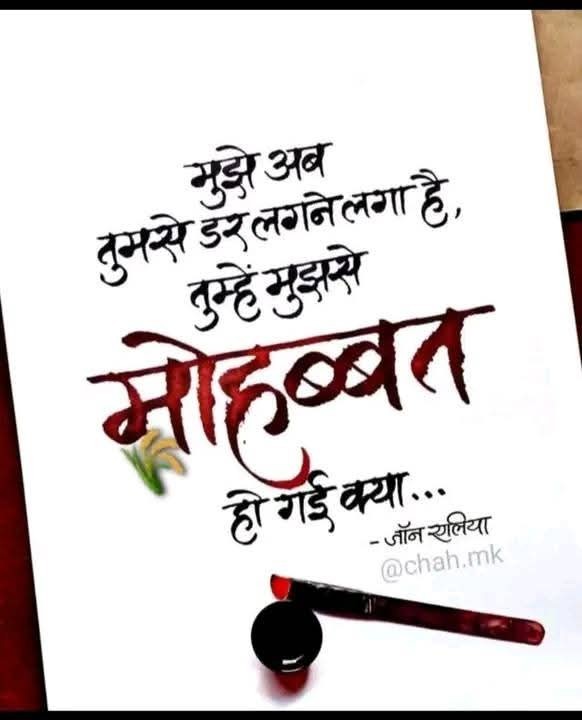 मुझे अब
तुमसे डर लगने लगा है,
तुम्हें मुझसे
मोहब्बत
हो गई क्या...
- जॉन एलिया
@chah.mk